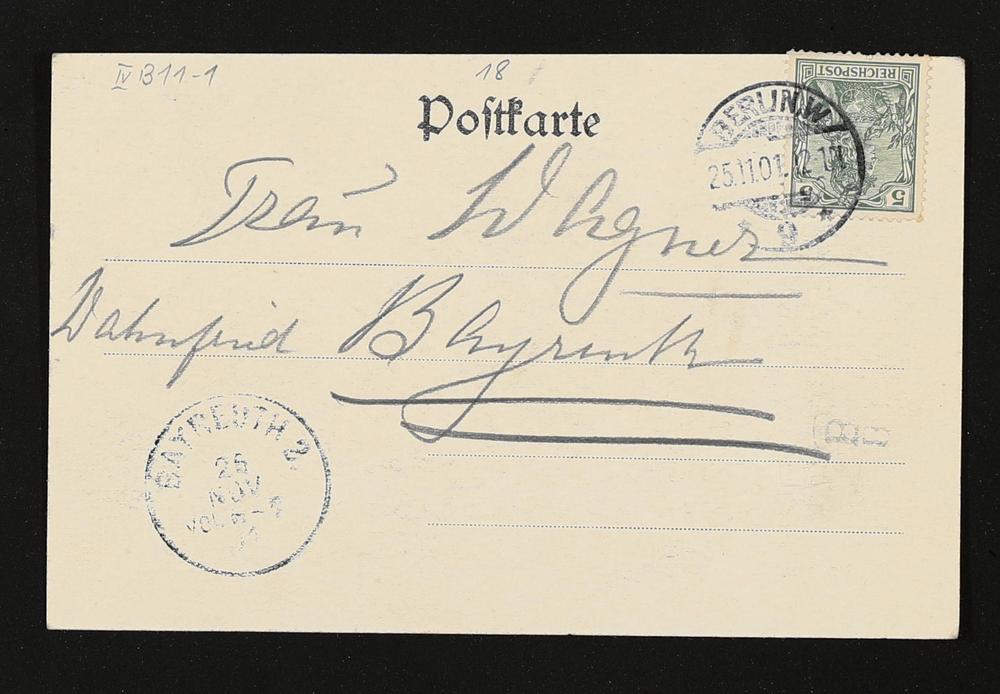 IV B11-1
18
Postkarte
REICHSPOST
5 5
BERLIN.W.
25.11.01.
9
Frau Wagner
Wahnfried Bayreuth
BAYREUTH 2.
NOV